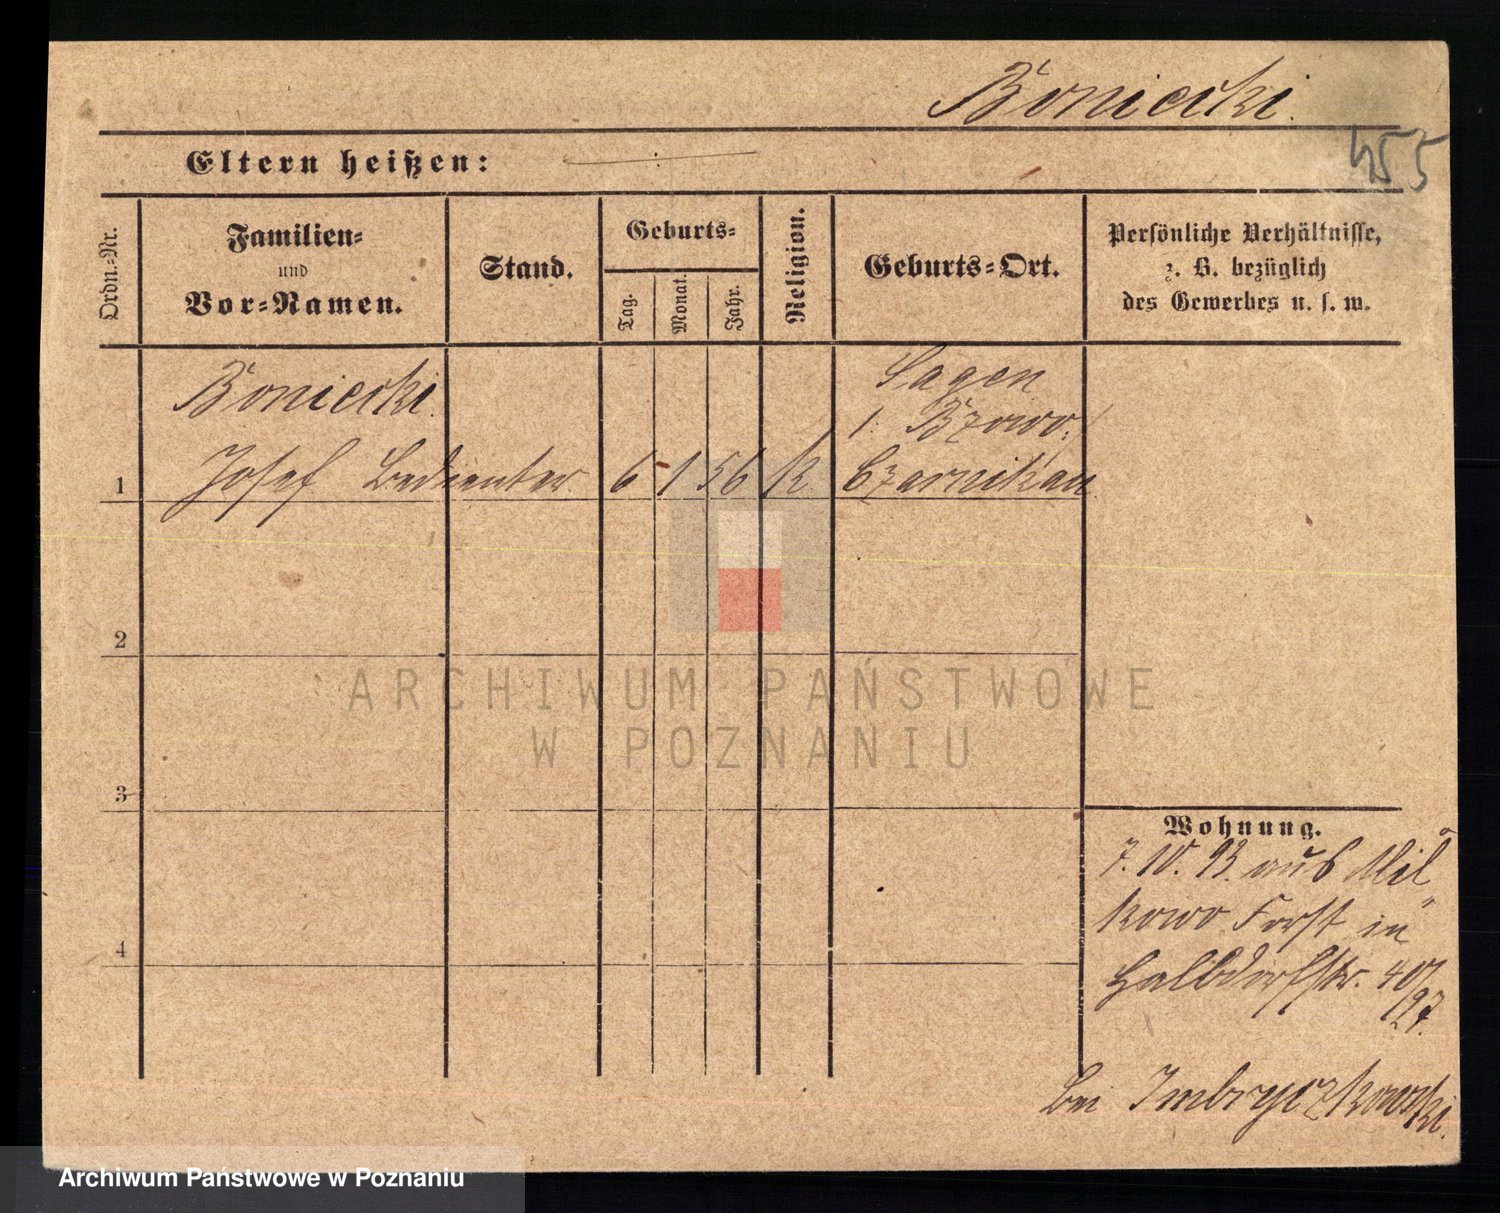 Boniecki.
455
Eltern heißen:
Ordn.-Nr.
Familien-
und
Vor-Namen.
Stand.
Geburts-
Tag.
Monat.
Jahr.
Religion.
Geburts-Ort.
Persönliche Verhältnisse,
z. B. bezüglich
des Gewerbes u. s. w.
Boniecki.
Josef Bedienter 6 1 56 K.
1
Bzowo.
Czarnikau
2
3
4
Wohnung.
7. 10. 93. aus Mil
kowo Forst in
Halbdorfstr. 40/
97.
bei Imbryczkowski.
ARCHIWUM PAŃSTWOWE
W POZNANIU
Archiwum Państwowe w Poznaniu